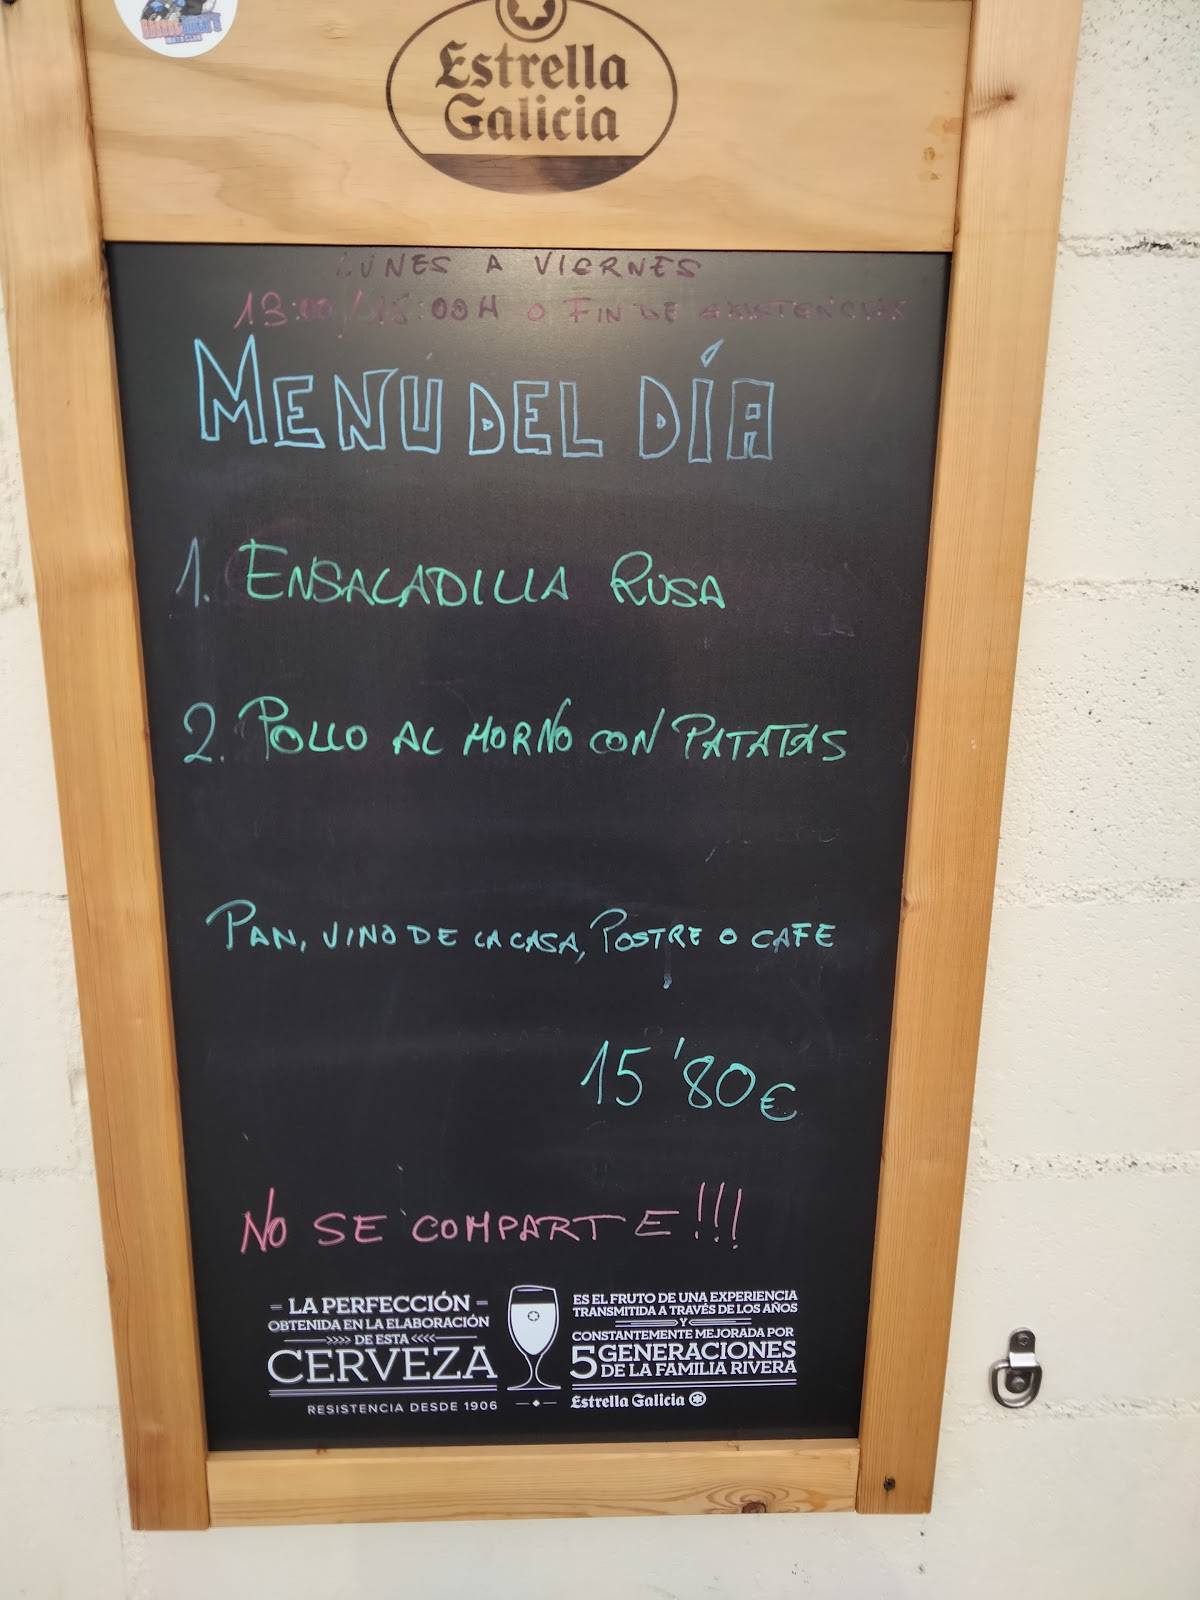 Estrella
Galicia
LUNES A VIERNES
13:00/15:00H O FIN DE EXISTENCIAS
MENÚ DEL DÍA
1. ENSALADILLA RUSA
2. POLLO AL HORNO CON PATATAS
PAN, VINO DE LA CASA, POSTRE O CAFE
15'80€
NO SE COMPARTE!!!
LA PERFECCIÓN
OBTENIDA EN LA ELABORACIÓN
>>>> DE ESTA <<<<
CERVEZA
RESISTENCIA DESDE 1906
ES EL FRUTO DE UNA EXPERIENCIA
TRANSMITIDA A TRAVÉS DE LOS AÑOS
Y
CONSTANTEMENTE MEJORADA POR
5 GENERACIONES
DE LA FAMILIA RIVERA
Estrella Galicia